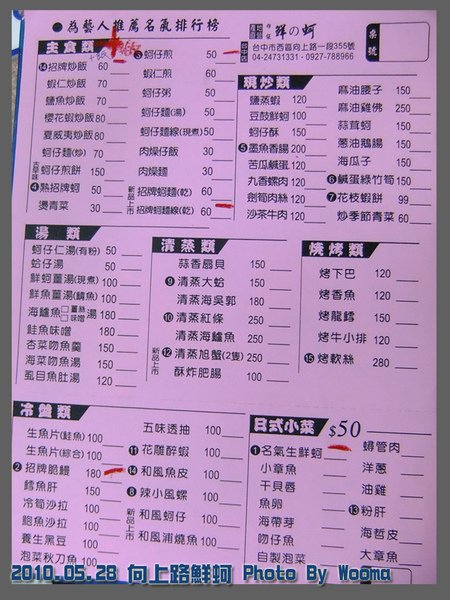 為藝人推薦名氣排行榜
鮮の蚵
台中市西區向上路一段355號
04-24731331・0927-788966
桌號
主食類
⑭招牌炒飯 80
蝦仁炒飯 80
鹽魚炒飯 80
櫻花蝦炒飯 60
夏威夷炒飯 80
蚵仔麵(炒) 70
蚵仔煎餅 150
④熱招牌蚵 60
燙青菜 30
③蚵仔煎 50
蝦仁煎 60
蚵仔粥 50
蚵仔麵(湯) 50
蚵仔麵線(現煮) 50
肉燥仔飯 30
肉燥麵 30
新品上市
招牌蚵麵(乾) 60
招牌蚵麵線(乾) 60
現炒類
鹽蒸蝦 120
豆鼓鮮蚵 100
蚵仔酥 150
⑤墨魚香腸 200
苦瓜鹹蛋 120
九香螺肉 120
劍筍肉絲 120
沙茶牛肉 120
麻油腰子 150
麻油雞佛 250
蒜茸蚵 150
蔥油鵝腸 150
海瓜子 150
⑥鹹蛋綠竹筍 150
⑦花枝蝦餅 99
炒季節青菜 60
湯類
蚵仔仁湯(有粉) 50
蛤仔湯 50
鮮蚵薑湯(現煮) 100
鮮魚薑湯(鯖魚) 100
海鱸魚 薑絲 味噌 湯 180
鮭魚味噌 100
杏菜吻魚羹 150
海菜吻魚湯 150
虱目魚肚湯 120
清蒸類
蒜香扇貝 150
⑨清蒸大蛤 150
清蒸海吳郭 180
⑩清蒸紅條 250
清蒸海鱸魚 250
新品上市
⑫清蒸旭蟹(2隻) 250
酥炸肥腸 100
燒烤類
烤下巴 120
烤香魚 120
烤龍鱈 150
烤牛小排 120
⑮烤軟絲 280
冷盤類
生魚片(鮭魚) 100
生魚片(綜合) 100
②招牌脆腸 180
鱈魚肝 150
冷筍沙拉 100
鮑魚沙拉 100
養生黑豆 100
泡菜秋刀魚 100
五味透抽 100
⑪花雕醉蝦 200
⑭和風魚皮 100
⑧辣小風螺 100
新品上市
和風蚵仔 100
和風浦燒魚 100
日式小菜 $50
①名氣生鮮蚵
小章魚
干貝唇
魚卵
海帶芽
吻仔魚
自製泡菜
鱘管肉
洋蔥
油雞
⑬粉肝
海哲皮
大章魚
2010.05.28 向上路鮮蚵 Photo By Wooma